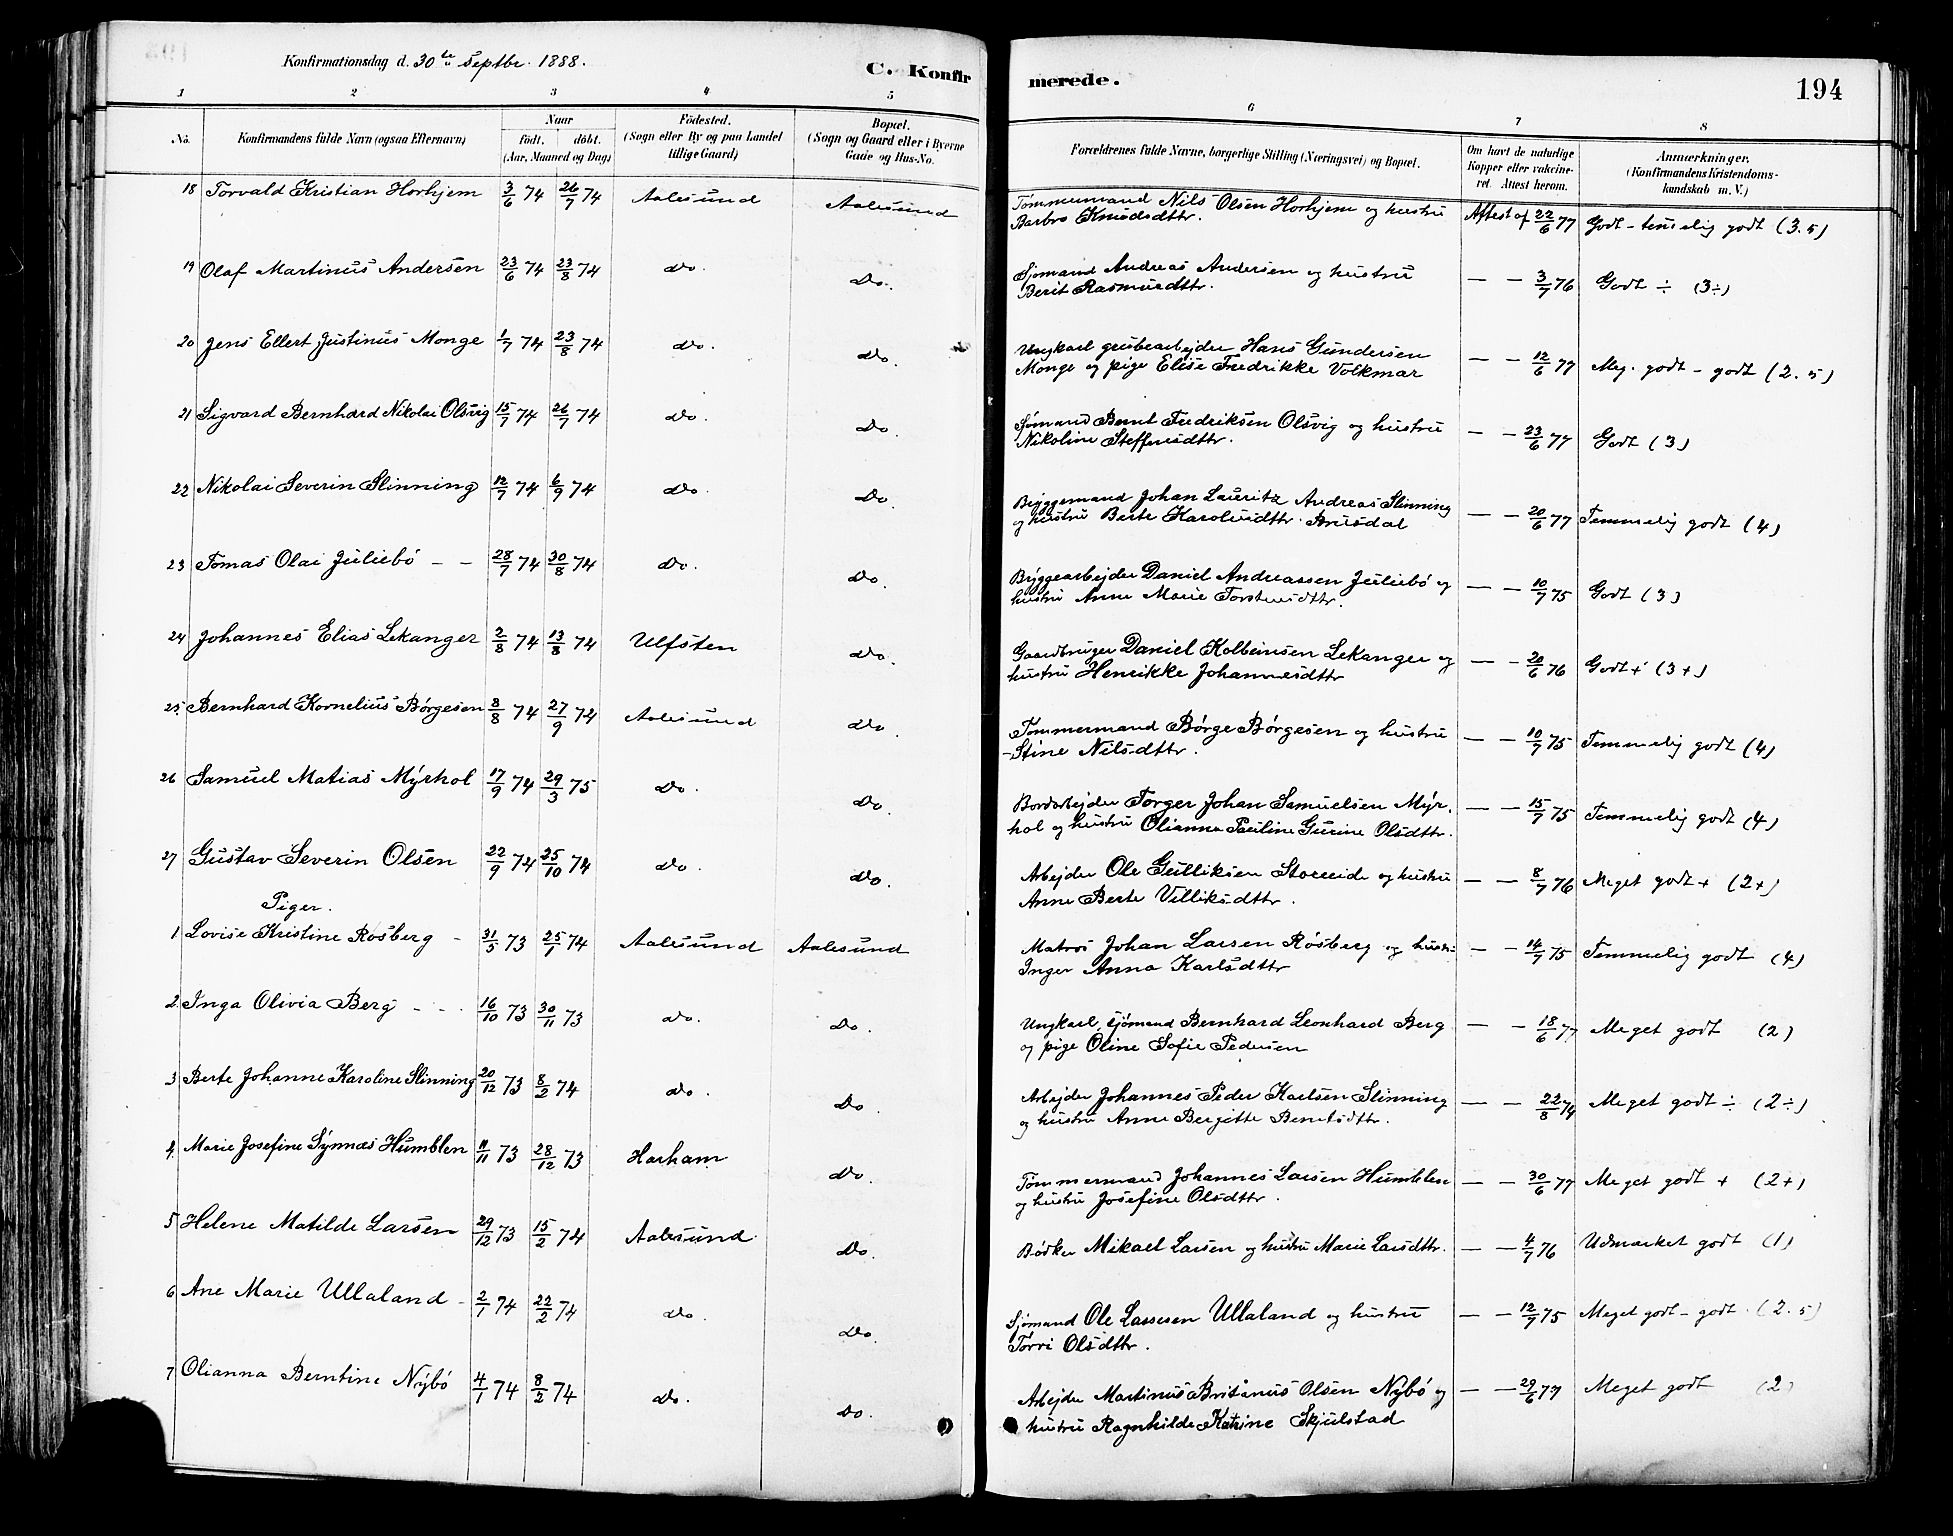 Konfirmationsdag d. 30te Septbr. 1888.
C. Konfirmerede.
194
1 2 3 4 5 6 7 8
No. Konfirmandens fulde Navn (ogsaa Efternavn) Naar født. døbt. (Aar, Maaned og Dag) Fødested. (Sogn eller By og paa Landet tillige Gaard) Bopæl. (Sogn og Gaard eller i Byerne Gade og Hus-No. Forældrenes fulde Navne, borgerlige Stilling (Næringsvei) og Bopæl. Om havt de naturlige Kopper eller vakcineret. Attest herom. Anmærkninger. (Konfirmandens Kristendomskundskab m. V.)
18 Torvald Kristian Horhjem 3/6 74 26/7 74 Aalesund Aalesund Tømmermand Nils Olsen Horhjem og hustru
Barbro Knudsdttr. Attest af 22/6 77 Godt - temmelig godt (3.5)
19 Olaf Martinus Andersen 23/6 74 23/8 74 do. do. Sjømand Andreas Andersen og hustru
Berit Rasmusdttr. — — 3/7 76 Godt ÷ (3÷)
20 Jens Ellert Justinus Monge 1/7 74 23/8 74 do. do. Ungkarl grubearbejder Hans Gundersen
Monge og pige Elise Fredrikke Volkmar — — 12/6 77 Meg. godt - godt (2.5)
21 Sigvard Bernhard Nikolai Olsvig 15/7 74 26/7 74 do. do. Sjømand Bernt Fredriksen Olsvig og hustru
Nikoline Steffensdttr. — — 23/6 77 Godt (3)
22 Nikolai Severin Slinning 12/7 74 6/9 74 do. do. Byggemand Johan Lauritz Andreas Slinning
og hustru Berte Karolusdttr. Brusdal — — 20/6 77 Temmelig godt (4)
23 Tomas Olai Juliebø — — 28/7 74 30/8 74 do. do. Bryggearbejder Daniel Andreassen Juliebø og
hustru Anne Marie Torstensdttr. — — 10/7 75 Godt (3)
24 Johannes Elias Lekanger 2/8 74 13/8 74 Ulfsten do. Gaardbruger Daniel Kolbeinsen Lekanger og
hustru Henrikke Johannesdttr — — 20/6 76 Godt + (3+)
25. Bernhard Kornelius Børgesen 8/8 74 27/9 74 Aalesund do. Tømmermand Børge Børgesen og hustru
Stine Nilsdttr. — — 10/7 75 Temmelig godt (4)
26 Samuel Matias Myrhol 17/9 74 29/3 75 do. do. Bordarbejder Torger Johan Samuelsen Myr-
hol og hustru Olianna Pauline Gurine Olsdttr. — — 15/7 75 Temmelig godt (4)
27 Gustav Severin Olsen 22/9 74 25/10 74 do. do. Arbejder Ole Gulliksen Storeide og hustru
Anne Berte Villiksdttr. — — 8/7 76 Meget godt + (2+)
Piger.
1 Lovise Kristine Rosberg - 31/5 73 25/1 74 Aalesund Aalesund Matros Johan Larsen Røsberg og hustru
Inger Anna Karlsdttr — — 14/7 75 Temmelig godt (4)
2 Inga Olivia Berg - - 16/10 73 30/11 73 do. do. Ungkarl, sjømand Bernhard Leonhard Berg
og pige Oline Sofie Pedersen — — 18/6 77 Meget godt (2)
3 Berte Johanne Karoline Slinning 20/12 73 8/2 74 do. do. Arbejder Johannes Peder Karlsen Slinning
og hustru Anne Bergitte Berntsdttr. — — 22/8 74 Meget godt ÷ (2÷)
4. Marie Josefine Synnæs Humblen 11/11 73 28/12 73 Harham do. Tømmermand Johannes Larsen Humblen
og hustru Josefine Olsdttr. — — 30/6 77 Meget godt + (2+)
5 Helene Matilde Larsen 29/12 73 15/2 74 Aalesund do. Bødker Mikael Larsen og hustru Marie Larsdttr. — — 4/7 76 Udmærket godt (1)
6 Ane Marie Ullaland - 2/1 74 22/2 74 do. do. Sjømand Ole Lassesen Ullaland og hustru
Torri Olsdttr. — — 12/7 75 Meget godt - godt. (2.5)
7 Olianna Berntine Nybø 4/1 74 8/2 74 do. do. Arbejder Martinus Britanus Olsen Nybø og
hustru Ragnhilde Katrine Skjulstad — — 29/6 77 Meget godt (2)